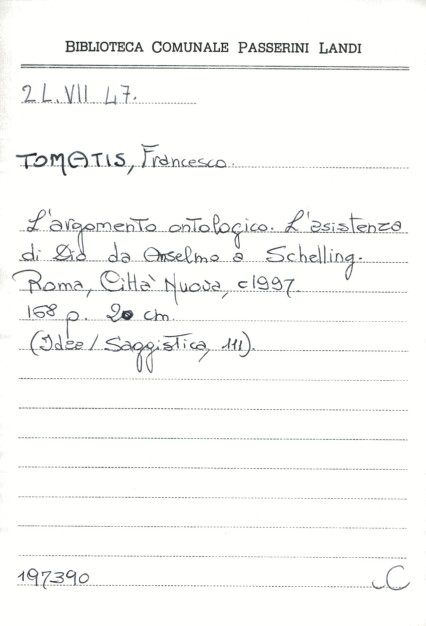 BIBLIOTECA COMUNALE PASSERINI LANDI
2L.VII.47.
TOMATIS, Francesco.
L'argomento ontologico. L'esistenza
di Dio da Anselmo a Schelling.
Roma, Città Nuova, c1997.
168 p. 20 cm.
(Idee / Saggistica, 111).
197390
C